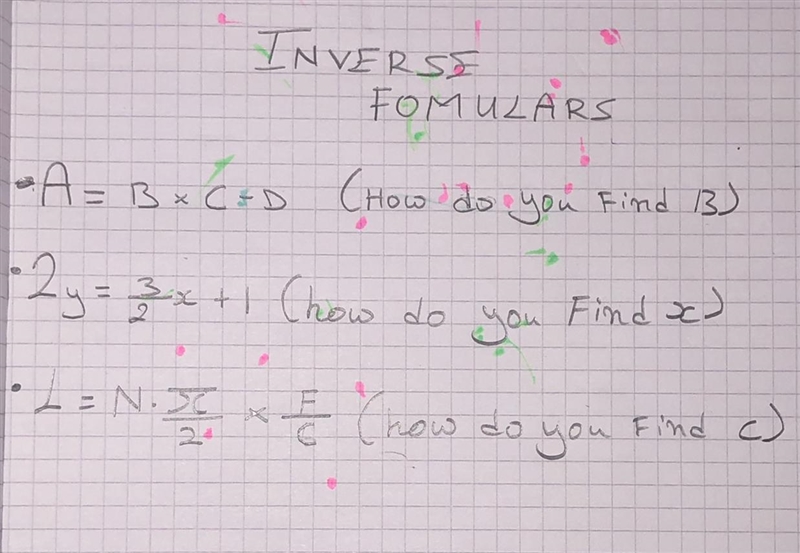 INVERSE
FOMULARS
• A = B × C - D (How do you Find B)
• 2y = 3/2 x + 1 (how do you Find x)
• L = N · π/2 × F/C (how do you Find C)